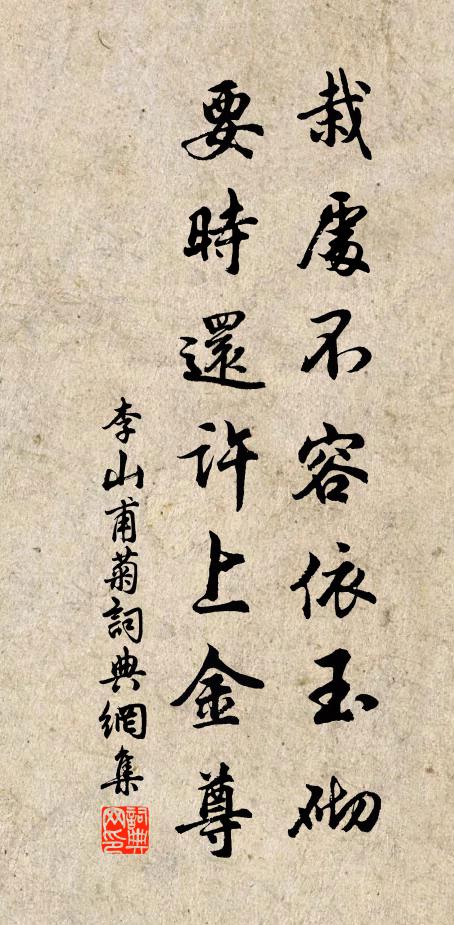 栽處不容依玉砌
要時還許上金尊
李山甫菊詞典網集
詞典
网印